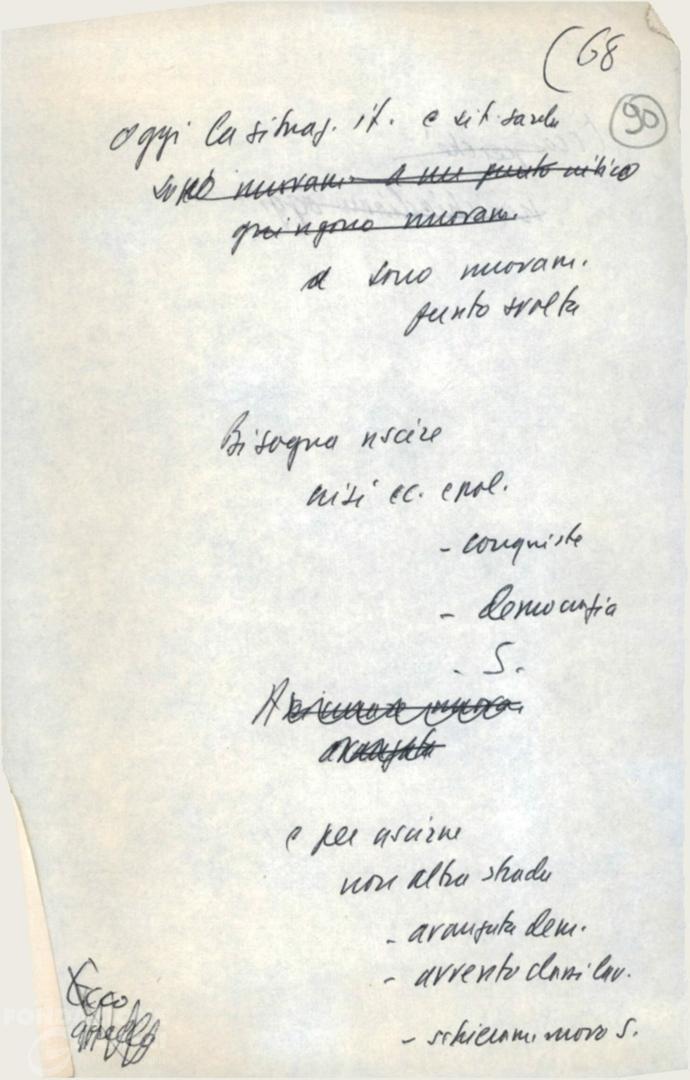 (68
90
Oggi la situaz. it. e sit. sarda
sono nuovam. a un punto critico
spingono nuovam.
sono nuovam.
punto svolta
Bisogna uscire
crisi ec. e pol.
- conquiste
- democrazia
- S.
avanzata
e per uscirne
non altra strada
- avanzata dem.
- avvento classi lav.
- schieram. nuovo S.
Ecco